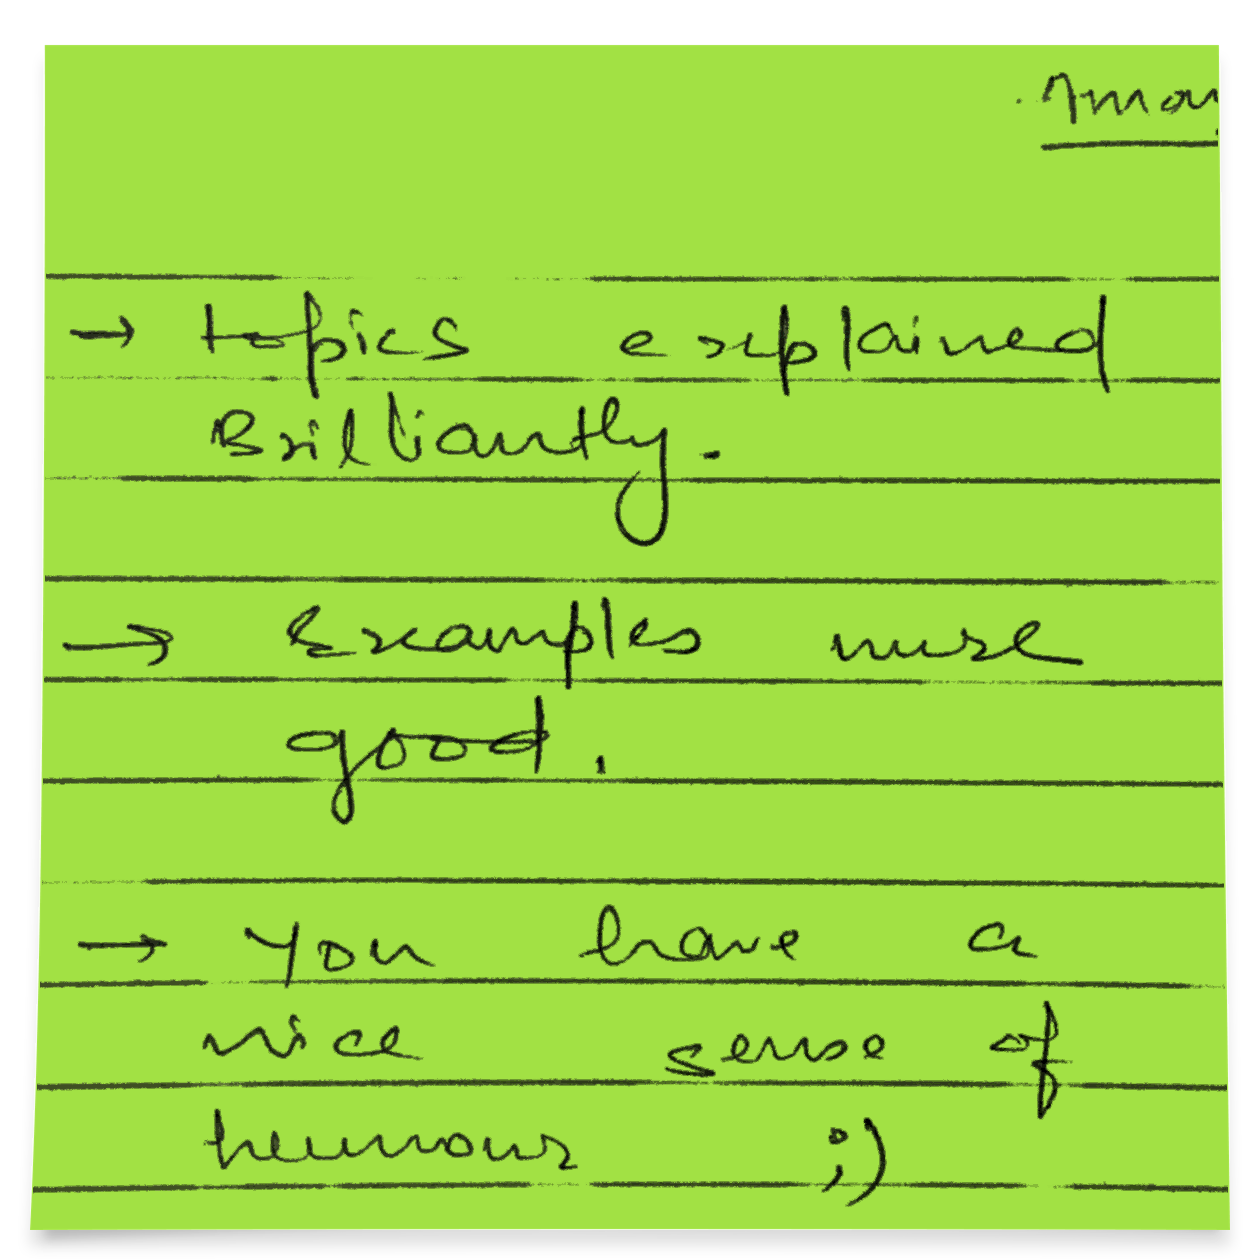 → topics explained
Brilliantly.
→ Examples were
good.
→ You have a
nice sense of
humour ;)